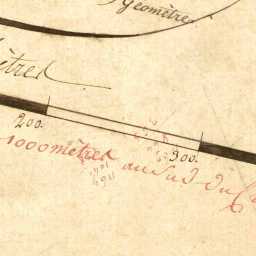 Géomètre
mètres
200. 300.
1000 mètres au Sud du